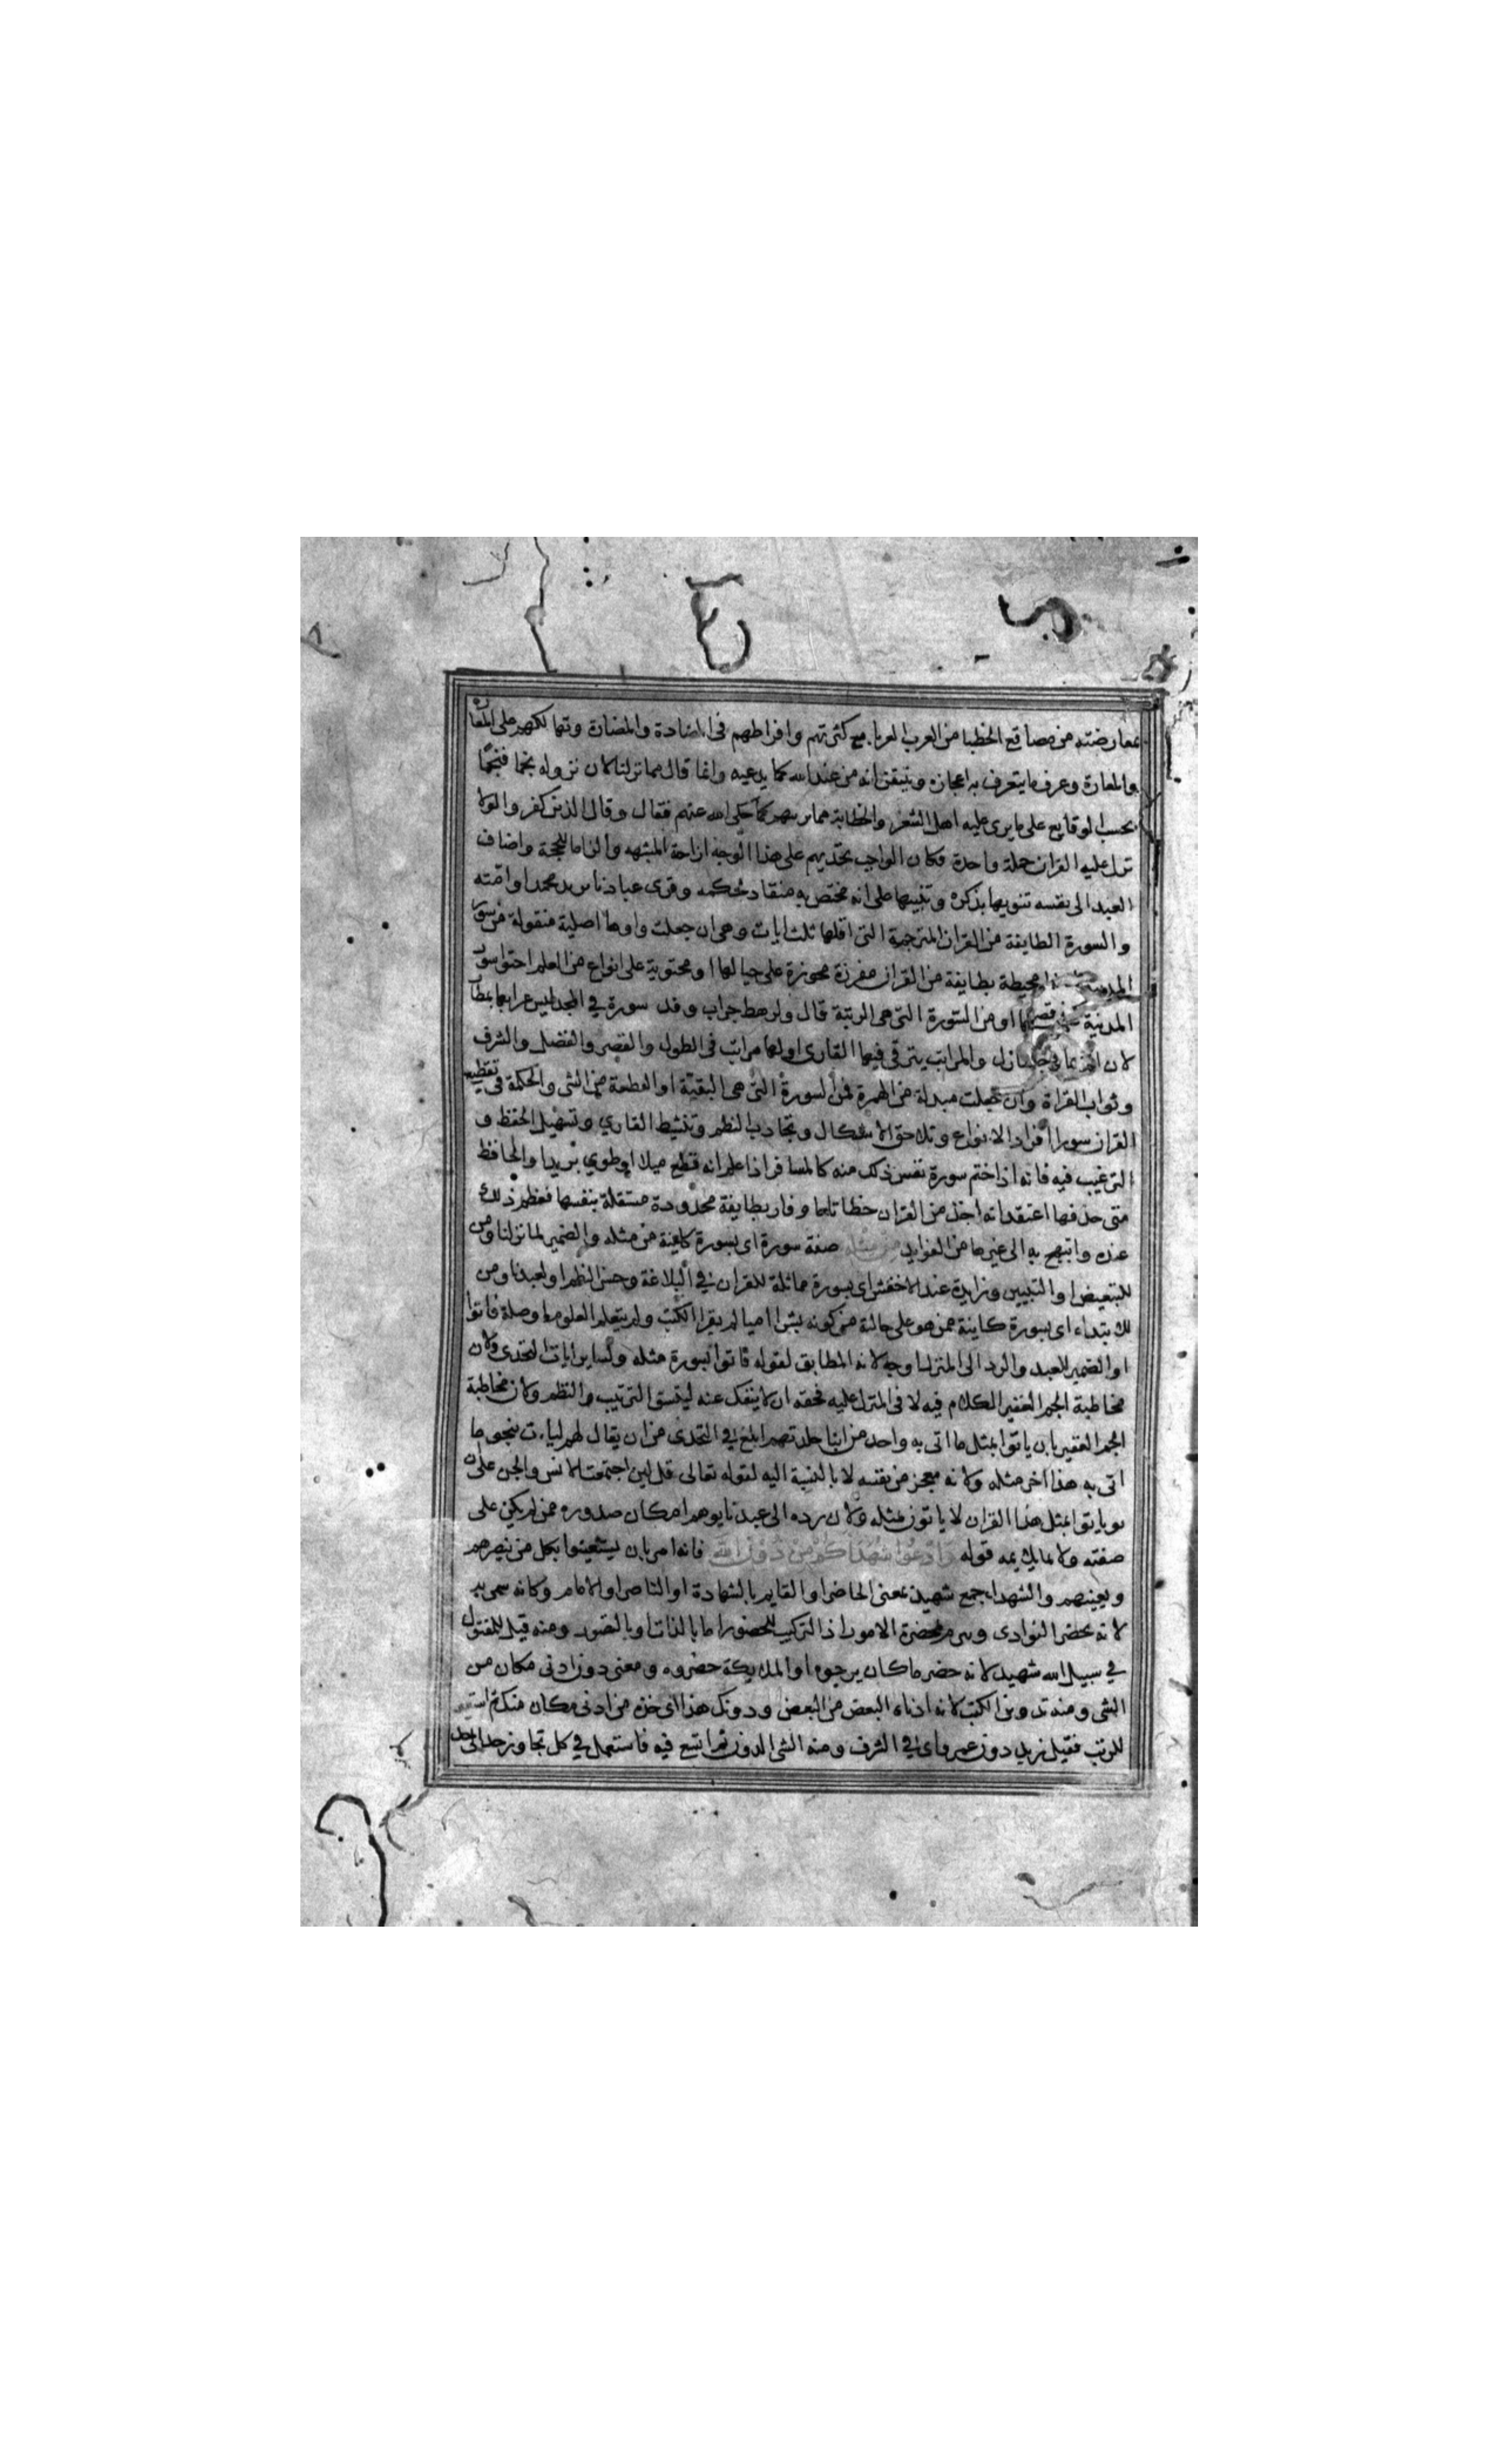 بمعارضته من مصاقع الخطبا من العرب العربا مع كثرتهم وافراطهم فى المضادة والمضارة وتهالكهم على المعازه
والمعارة وعرف ما يتعرف به اعجازه ويتيقن انه من عند الله كما يدعيه وانما قال مما نزلنا لان نزوله نجما فنجما
بحسب الوقايع على ما يرى عليه اهل الشعر والخطابة مما يريبهم كما حكى الله عنهم فقال وقال الذين كفروا لولا
نزل عليه القران جملة واحدة فكان الواجب تحديهم على هذا الوجه ازاحة للشبهه والزاما للحجة واضاف
العبد الى نفسه تنويها بذكره وتنبيها على انه مختص به منقاد لحكمه وقرى عبادنا يريد محمدا وامته
والسورة الطايفة من القران المترجمة التى اقلها ثلث ايات وهى ان جعلت واوها اصلية منقولة من سور
المدينة محيطة بطايفة من القران مفرزة محوزة على حيالها او محتوية على انواع من العلم احتوا سور
المدينة على ما فيها او من السورة التى هى الرتبة قال ولرهط حراب وقد سورة فى المجد ليس غرابها بمطار
لان كالمنازل والمراتب يترقى فيها القارى او لها مراتب فى الطول والقصر والفضل والشرف
وثواب القراة وان جعلت مبدلة من الهمزة فمن السورة التى هى البقية او القطعة من الشى والحكمة فى تقطيع
القران سورا افراد الانواع وتلاحق الاشكال وتجاوب النظم وتنشيط القارى وتسهيل الحفظ و
الترغيب فيه فانه اذا ختم سورة نفس ذلك منه كالمسافر اذا علم انه قطع ميلا او طوى بريدا والحافظ
متى حذفها اعتقد انه اخذ من القران حظا تاما وفاز بطايفة محدودة مستقلة بنفسها فعظم ذلك
عنده وابتهج به الى غيرها من الفوايد من مثله صفة سورة اى بسورة كاينة من مثله والضمير لما نزلنا ومن
للتبعيض او التبيين وزايدة عند الاخفش اى بسورة مماثلة للقران فى البلاغة وحسن النظم او لعبدنا ومن
للابتداء اى بسورة كاينة ممن هو على حاله من كونه بشرا اميا لم يقرا الكتب ولم يتعلم العلوم او صلة فاتوا
او الضمير للعبد والرد الى المنزل اوجه لانه المطابق لقوله فاتوا بسورة مثله ولساير ايات التحدى ولان
مخاطبة الجم الغفير الكلام فيه لا فى المنزل عليه فحقه ان لا ينفك عنه ليتسق الترتيب والنظم ولان مخاطبة
الجم الغفير بان ياتوا بمثل ما اتى به واحد من ابنا جلدتهم ابلغ فى التحدى من ان يقال لهم ليات بنحو ما
اتى به هذا اخر مثله ولانه معجز من نفسه لا بالنسبة اليه لقوله تعالى قل لين اجتمعت الانس والجن على ان
ياتوا بمثل هذا القران لا ياتون بمثله ولان رده الى عبدنا يوهم امكان صدوره ممن لم يكن على
صفته ولا يلايمه قوله وادعوا شهداكم من دون الله فانه امر بان يستعينوا بكل من ينصرهم
ويعينهم والشهدا جمع شهيد بمعنى الحاضر او القايم بالشهادة او الناصر او الامام وكانه سمى به
لانه يحضر النوادى ويبرم بمحضره الامور اذ التركيب للحضور اما بالذات او بالتصور ومنه قيل للمقتول
فى سبيل الله شهيد لانه حضر ما كان يرجوه او الملايكة حضروه ومعنى دون ادنى مكان من
الشى ومنه تدوين الكتب لانه ادناء البعض من البعض ودونك هذا اى خذه من ادنى مكان منك ثم استعير
للرتب فقيل زيد دون عمرو اى فى الشرف ومنه الشى الدون ثم اتسع فيه فاستعمل فى كل تجاوز حد الى حد